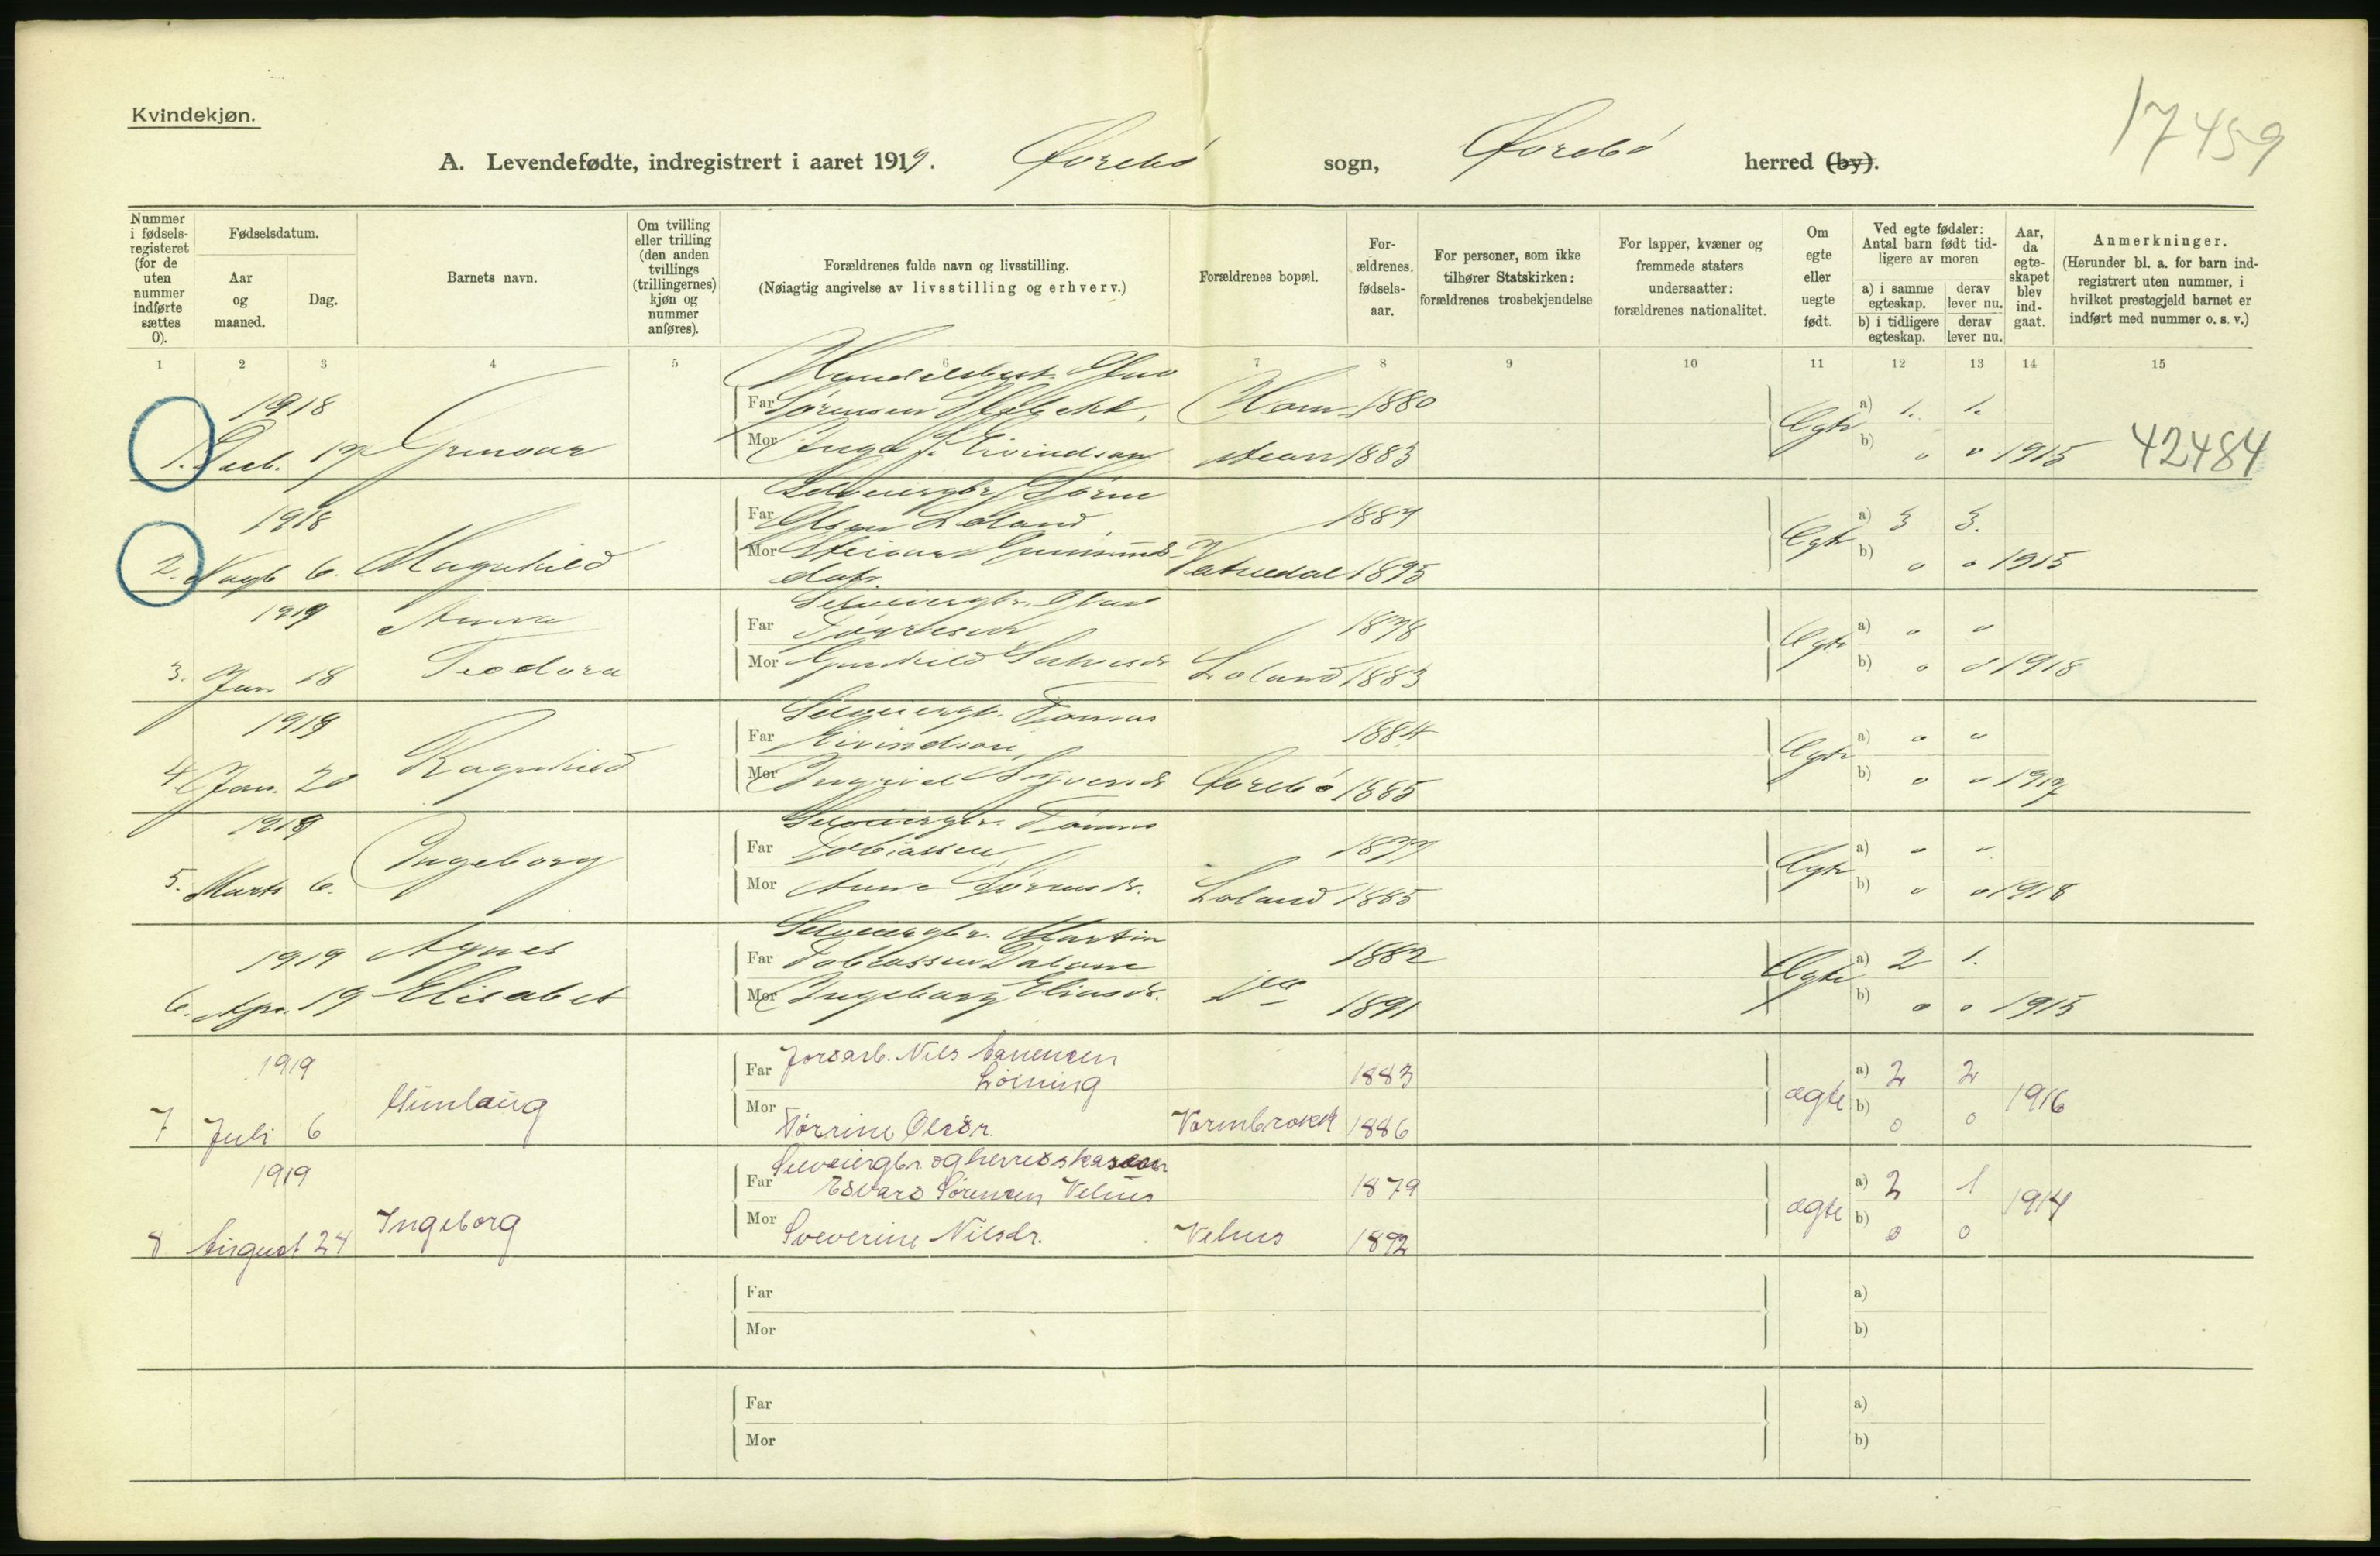 Kvindekjøn.
17459
A. Levendefødte, indregistrert i aaret 1919. Øvrebø sogn, Øvrebø herred (by).
Nummer i fødselsregisteret (for de uten nummer indførte sættes 0).
Fødselsdatum.
Aar og maaned.
Dag.
Barnets navn.
Om tvilling eller trilling (den anden tvillings (trillingernes) kjøn og nummer anføres).
Forældrenes fulde navn og livsstilling.
(Nøiagtig angivelse av livsstilling og erhverv.)
Forældrenes bopæl.
Forældrenes fødselsaar.
For personer, som ikke tilhører Statskirken: forældrenes trosbekjendelse
For lapper, kvæner og fremmede staters undersaatter: forældrenes nationalitet.
Om egte eller uegte født.
Ved egte fødsler: Antal barn født tidligere av moren
a) i samme egteskap.
derav lever nu.
b) i tidligere egteskap.
derav lever nu.
Aar, da egteskapet blev indgaat.
Anmerkninger.
(Herunder bl. a. for barn indregistrert uten nummer, i hvilket prestegjeld barnet er indført med nummer o. s. v.)
1 2 3 4 5 6 7 8 9 10 11 12 13 14 15
Olav
1918 Far Sørensen 1880 a) 1. 1.
1. Decb. 17 Gunvor Mor Inga J. Eivindsen 1883 Egte b) " " 1915 42484
Selveiergbr. Søren
1918 Far Olsen Løland 1887 a) 3 3.
2. Magnhild Mor Vatnedal 1895 Egte b) " " 1915
datr.
Selveiergbr. Olav
1919 Anna Far 1878 a) " "
3. Jan 18 Teodora Mor Gunhild Løland 1883 Egte b) " " 1918
Selveiergb. Tomas
1919 Far Eivindsen 1884 a) " "
4. Jan. 20 Ragnhild Mor Ingrid Øvrebø 1885 Egte b) " " 1917
Selveiergbr. Tomas
1919 Far Tobiassen 1877 a) " "
5. Marts 6. Ingeborg Mor Anna Sørensdr. Løland 1885 Egte b) " " 1918
Selveiergbr. Martin
1919 Agnes Far Tobiassen Dalane 1882 a) 2 1.
6. Apr. 19 Elisabet Mor Ingeborg Eliasdr. 1891 Egte b) " " 1915
Far Jordarb. Nils
1919 1883 a) 2 2
7 Juli 6 Mor Tørrine Olsdr. 1886 ægte b) 0 0 1916
Selveiergbr og herredskasserer
1919 Far Edvard Sørensen Vehus 1879 a) 2 1
8 August 24 Ingeborg Mor Severine Nilsdr. Vehus 1892 ægte b) 0 0 1914
Far a)
Mor b)
Far a)
Mor b)